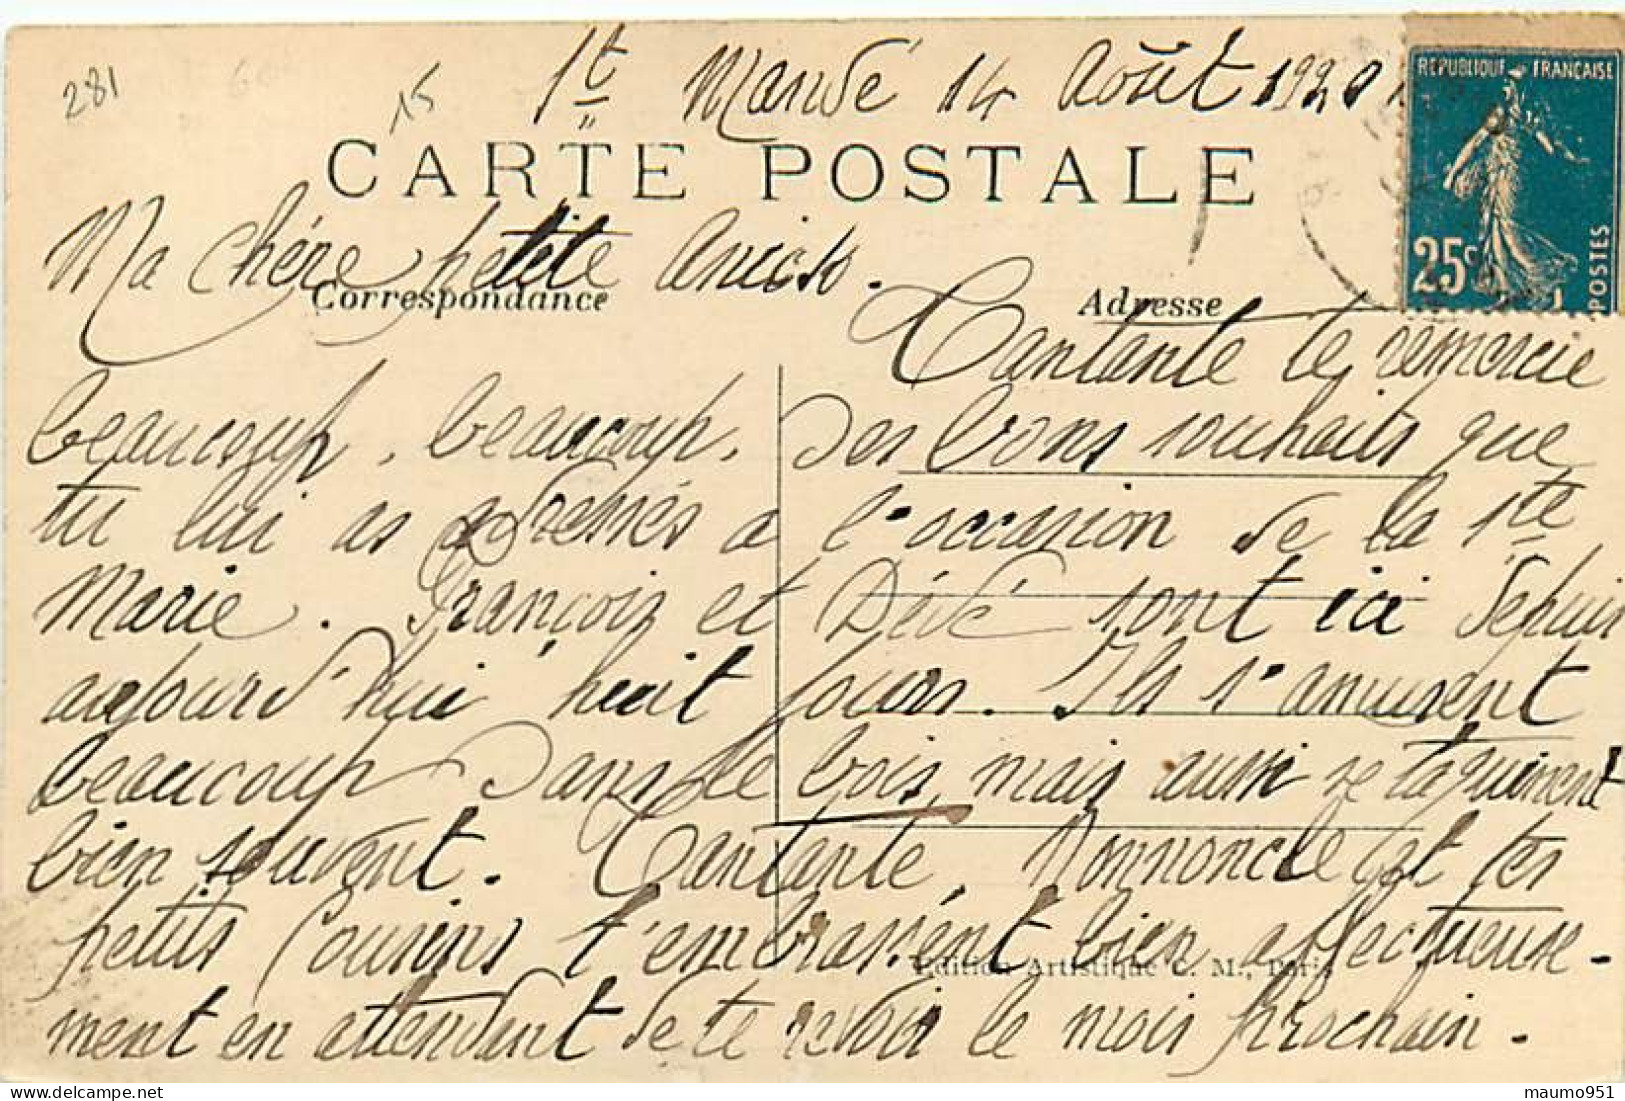 281
15
St Mandé 14 Août 1920
REPUBLIQUE FRANÇAISE
25c
POSTES
CARTE POSTALE
Ma chère petite
Correspondance
Adresse
Tantante te remercie
beaucoup, beaucoup, des bons souhaits que
tu lui as adressés à l'occasion de la Ste
Marie. François et Dédé sont ici depuis
aujourd'hui huit jours. Ils s'amusent
beaucoup dans le bois, mais aussi se taquinent
bien souvent. Tantante, Nonnoncle et tes
petits Cousins t'embrassent bien affectueuse-
Edition Artistique C. M., Paris
ment en attendant de te revoir le mois prochain.
maumo951